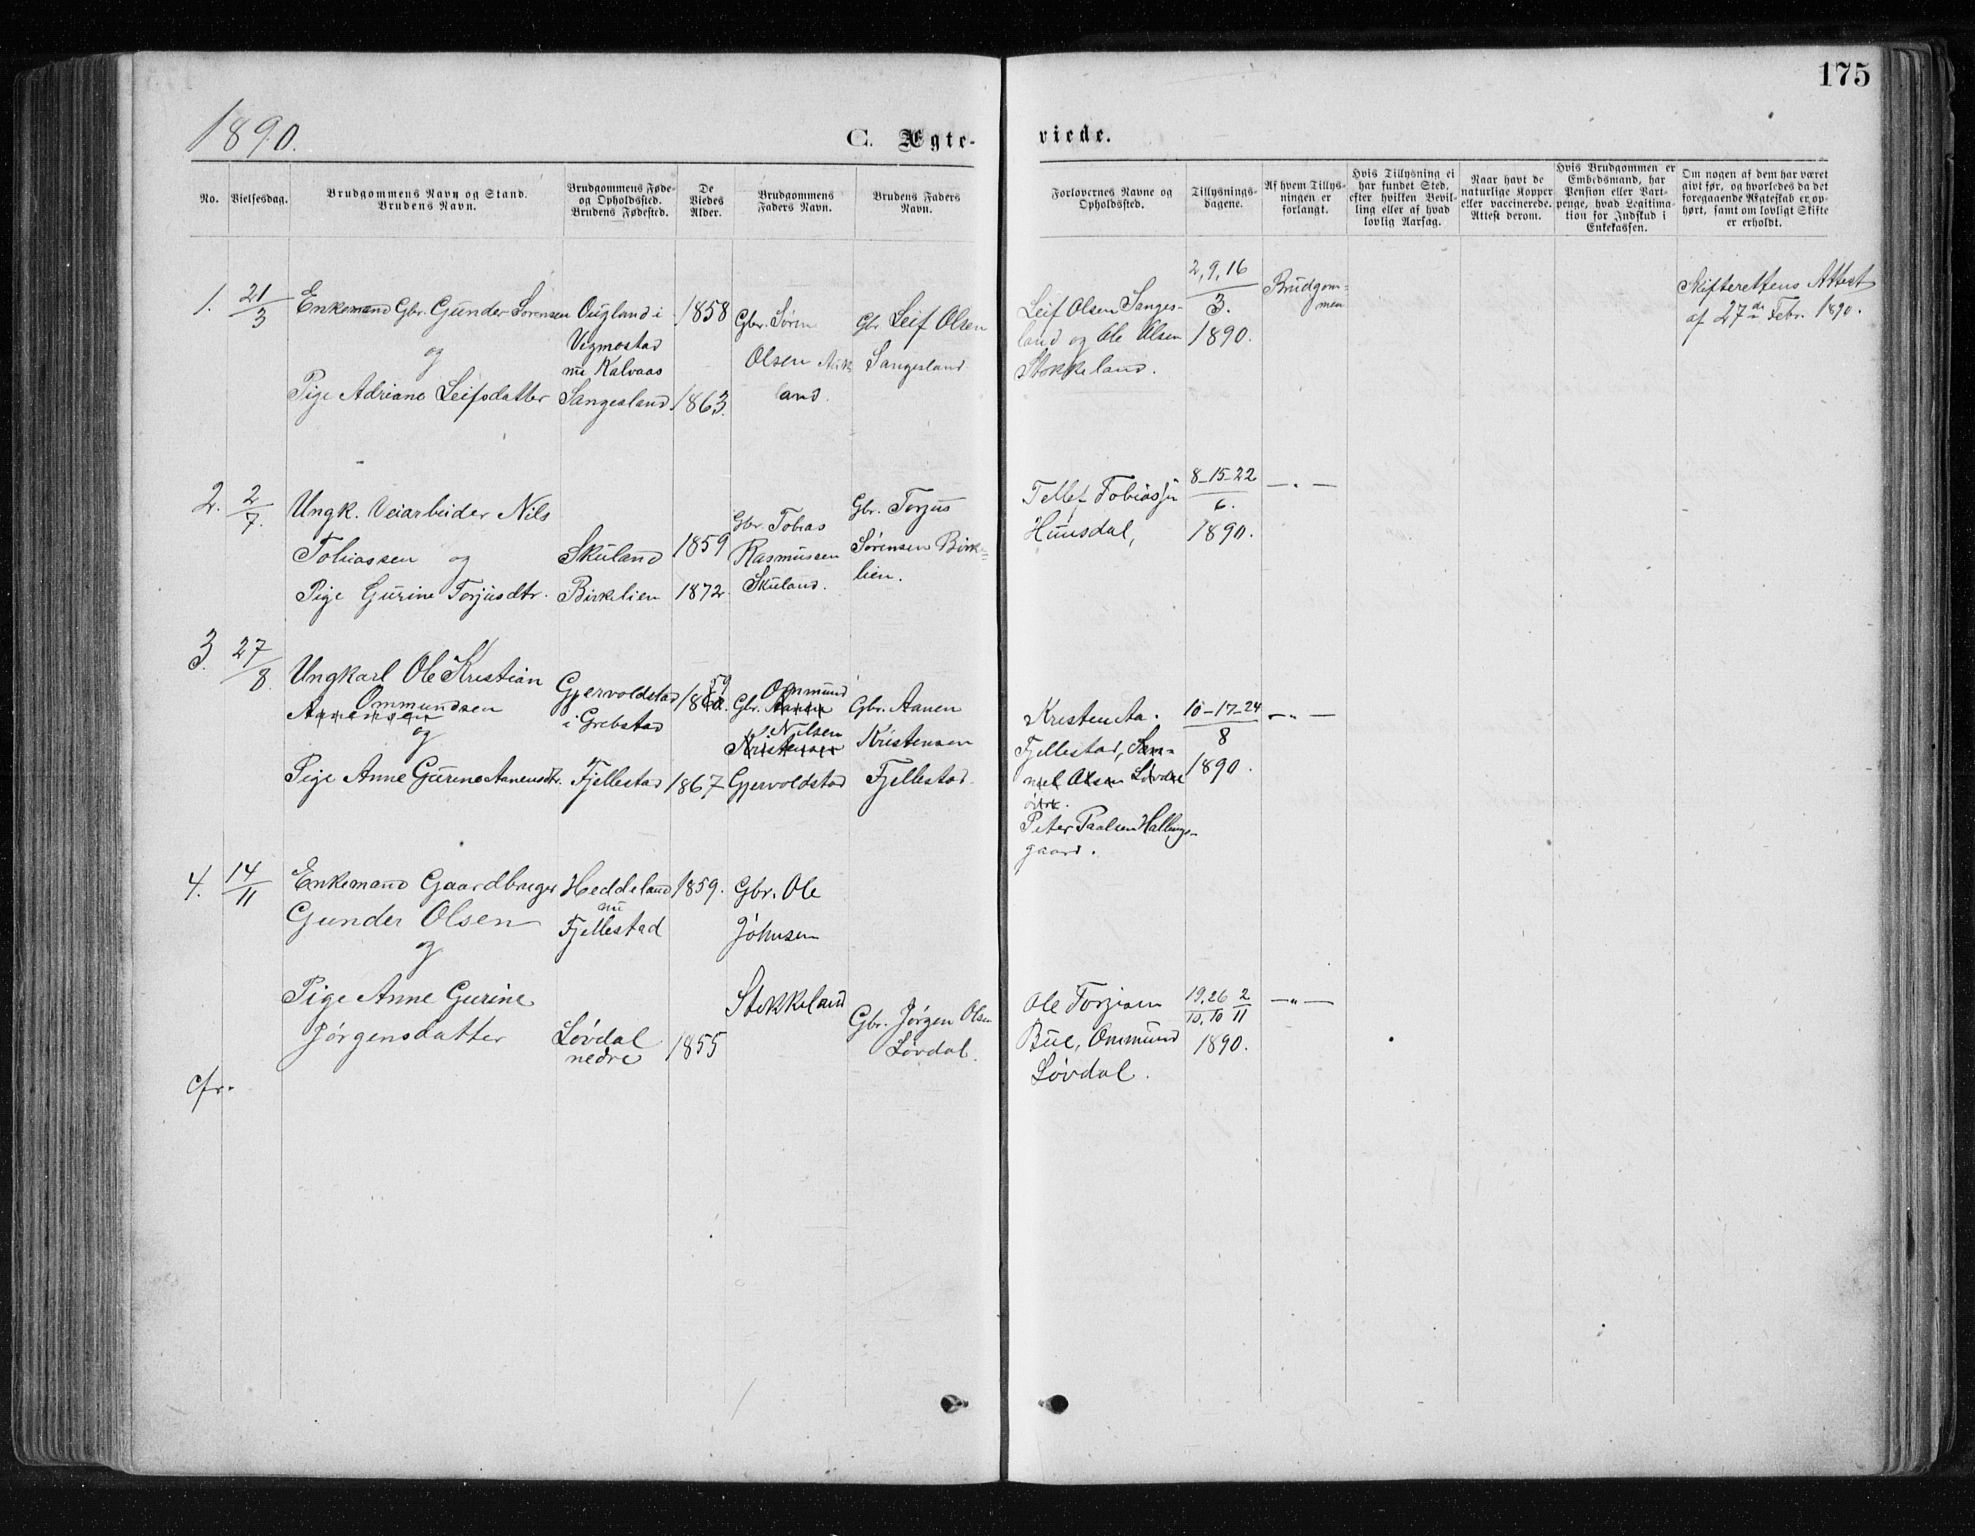 175
1890.
C. Ægte-
viede.
No.
Vielsesdag.
Brudgommens Navn og Stand.
Brudens Navn.
Brudgommens Føde-
og Opholdssted.
Brudens Fødested.
De
Viedes
Alder.
Brudgommens
Faders Navn.
Brudens Faders
Navn.
Forlovernes Navne og
Opholdssted.
Tillysnings-
dagene.
Af hvem Tillys-
ningen er
forlangt.
Hvis Tillysning ei
har fundet Sted,
efter hvilken Bevil-
ling eller af hvad
lovlig Aarsag.
Naar havt de
naturlige Kopper
eller vaccinerede.
Attest derom.
Hvis Brudgommen er
Embedsmand, har
Pension eller Vart-
penge, hvad Legitima-
tion for Indskud i
Enkekassen.
Om nogen af dem har været
givt før, og hvorledes da det
foregaaende Ægteskab er op-
hørt, samt om lovligt Skifte
er erholdt.
1.
21/3
Enkemand Gbr. Gunder Sørensen
og
Pige Adriane Leifsdatter
Ougland i
Vigmostad
nu Kalvaas
Sangesland
1858
1863.
Gbr. Søren
Olsen
land.
Gbr. Leif Olsen
Sangesland
Leif Olsen Sanges-
land og Ole Olsen
Stokkeland.
2, 9, 16
3.
1890.
Brudgom-
men
Skifterettens Attest
af 27de Febr. 1890.
2.
2/7.
Ungk. Veiarbeider Nils
Tobiassen og
Pige Gurine Torjusdtr.
Skuland
Birkelien
1859
1872.
Gbr. Tobias
Rasmussen
Skuland.
Gbr. Torjus
Sørensen Birke-
lien.
Tellef Tobiassen
Huusdal,
8-15-22
6.
1890.
—„—
3.
27/8.
Ungkarl Ole Kristian
Ommundsen
Aanensen
og
Pige Anne Gurine Aanensdtr.
Gjervoldstad
i Grebstad
Fjellestad
59
1860.
1867
Ommund
Gbr. Aanen
Nilsen
Kristensen
Gjervoldstad
Gbr. Aanen
Kristensen
Fjellestad.
Kristen Aa.
Fjellestad, Sam-
uel Olsen Løvdal
Peter Paulsen Hallings-
gaard.
10-17-24
8
1890.
—„—
4.
14/11
Enkemand Gaardbruger
Gunder Olsen
og
Pige Anne Gurine
Jørgensdatter
Heddeland
nu
Fjellestad
Løvdal
nedre
1859.
1855
Gbr. Ole
Johnsen
Stokkeland
Gbr. Jørgen Olsen
Løvdal.
Ole Torjusen
Bue, Ommund
Løvdal.
19, 26 2
10, 10 11
1890.
—„—
cfr.